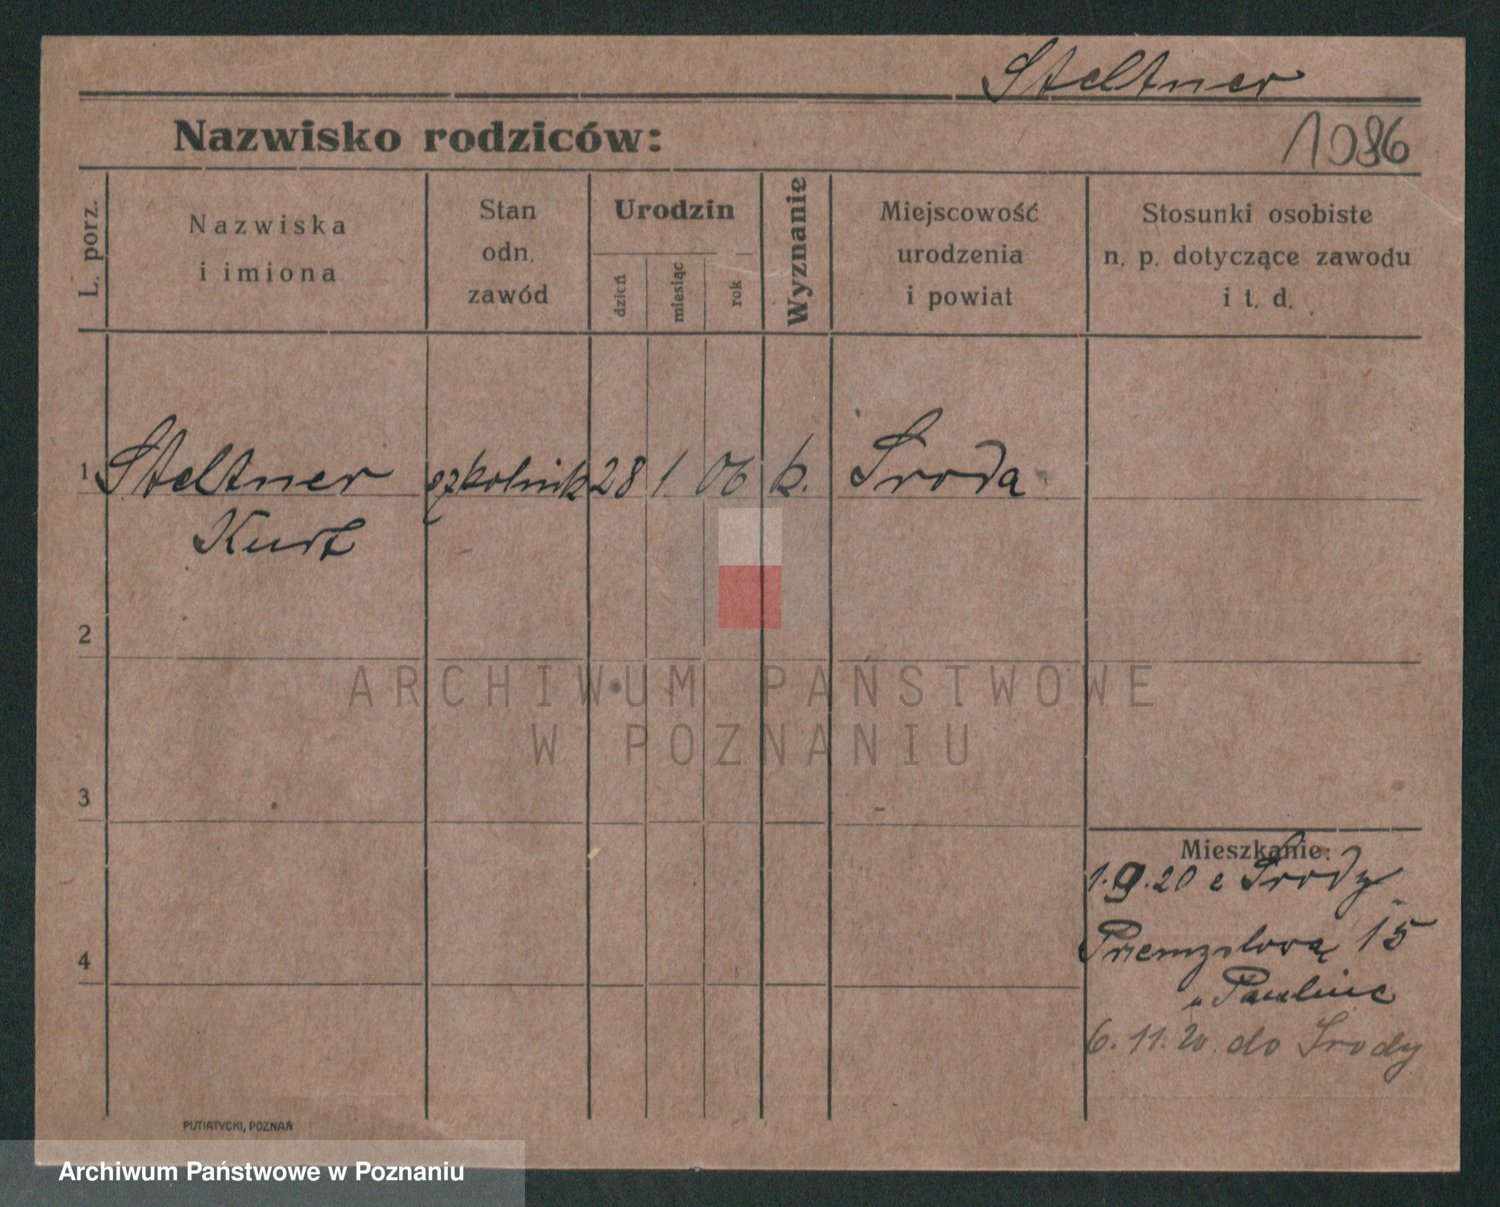 Steltner
Nazwisko rodziców:
1086
L. porz.
Nazwiska
i imiona
Stan
odn.
zawód
Urodzin
dzień
miesiąc
rok
Wyznanie
Miejscowość
urodzenia
i powiat
Stosunki osobiste
n. p. dotyczące zawodu
i t. d.
1 Steltner szkolnik 28 1. 06 k. Środa
Kurt
2
ARCHIWUM PAŃSTWOWE
W POZNANIU
3
Mieszkanie:
1.9.20 z Środy
15
4
6.11.20. do Środy
PUTIATYCKI, POZNAŃ
Archiwum Państwowe w Poznaniu